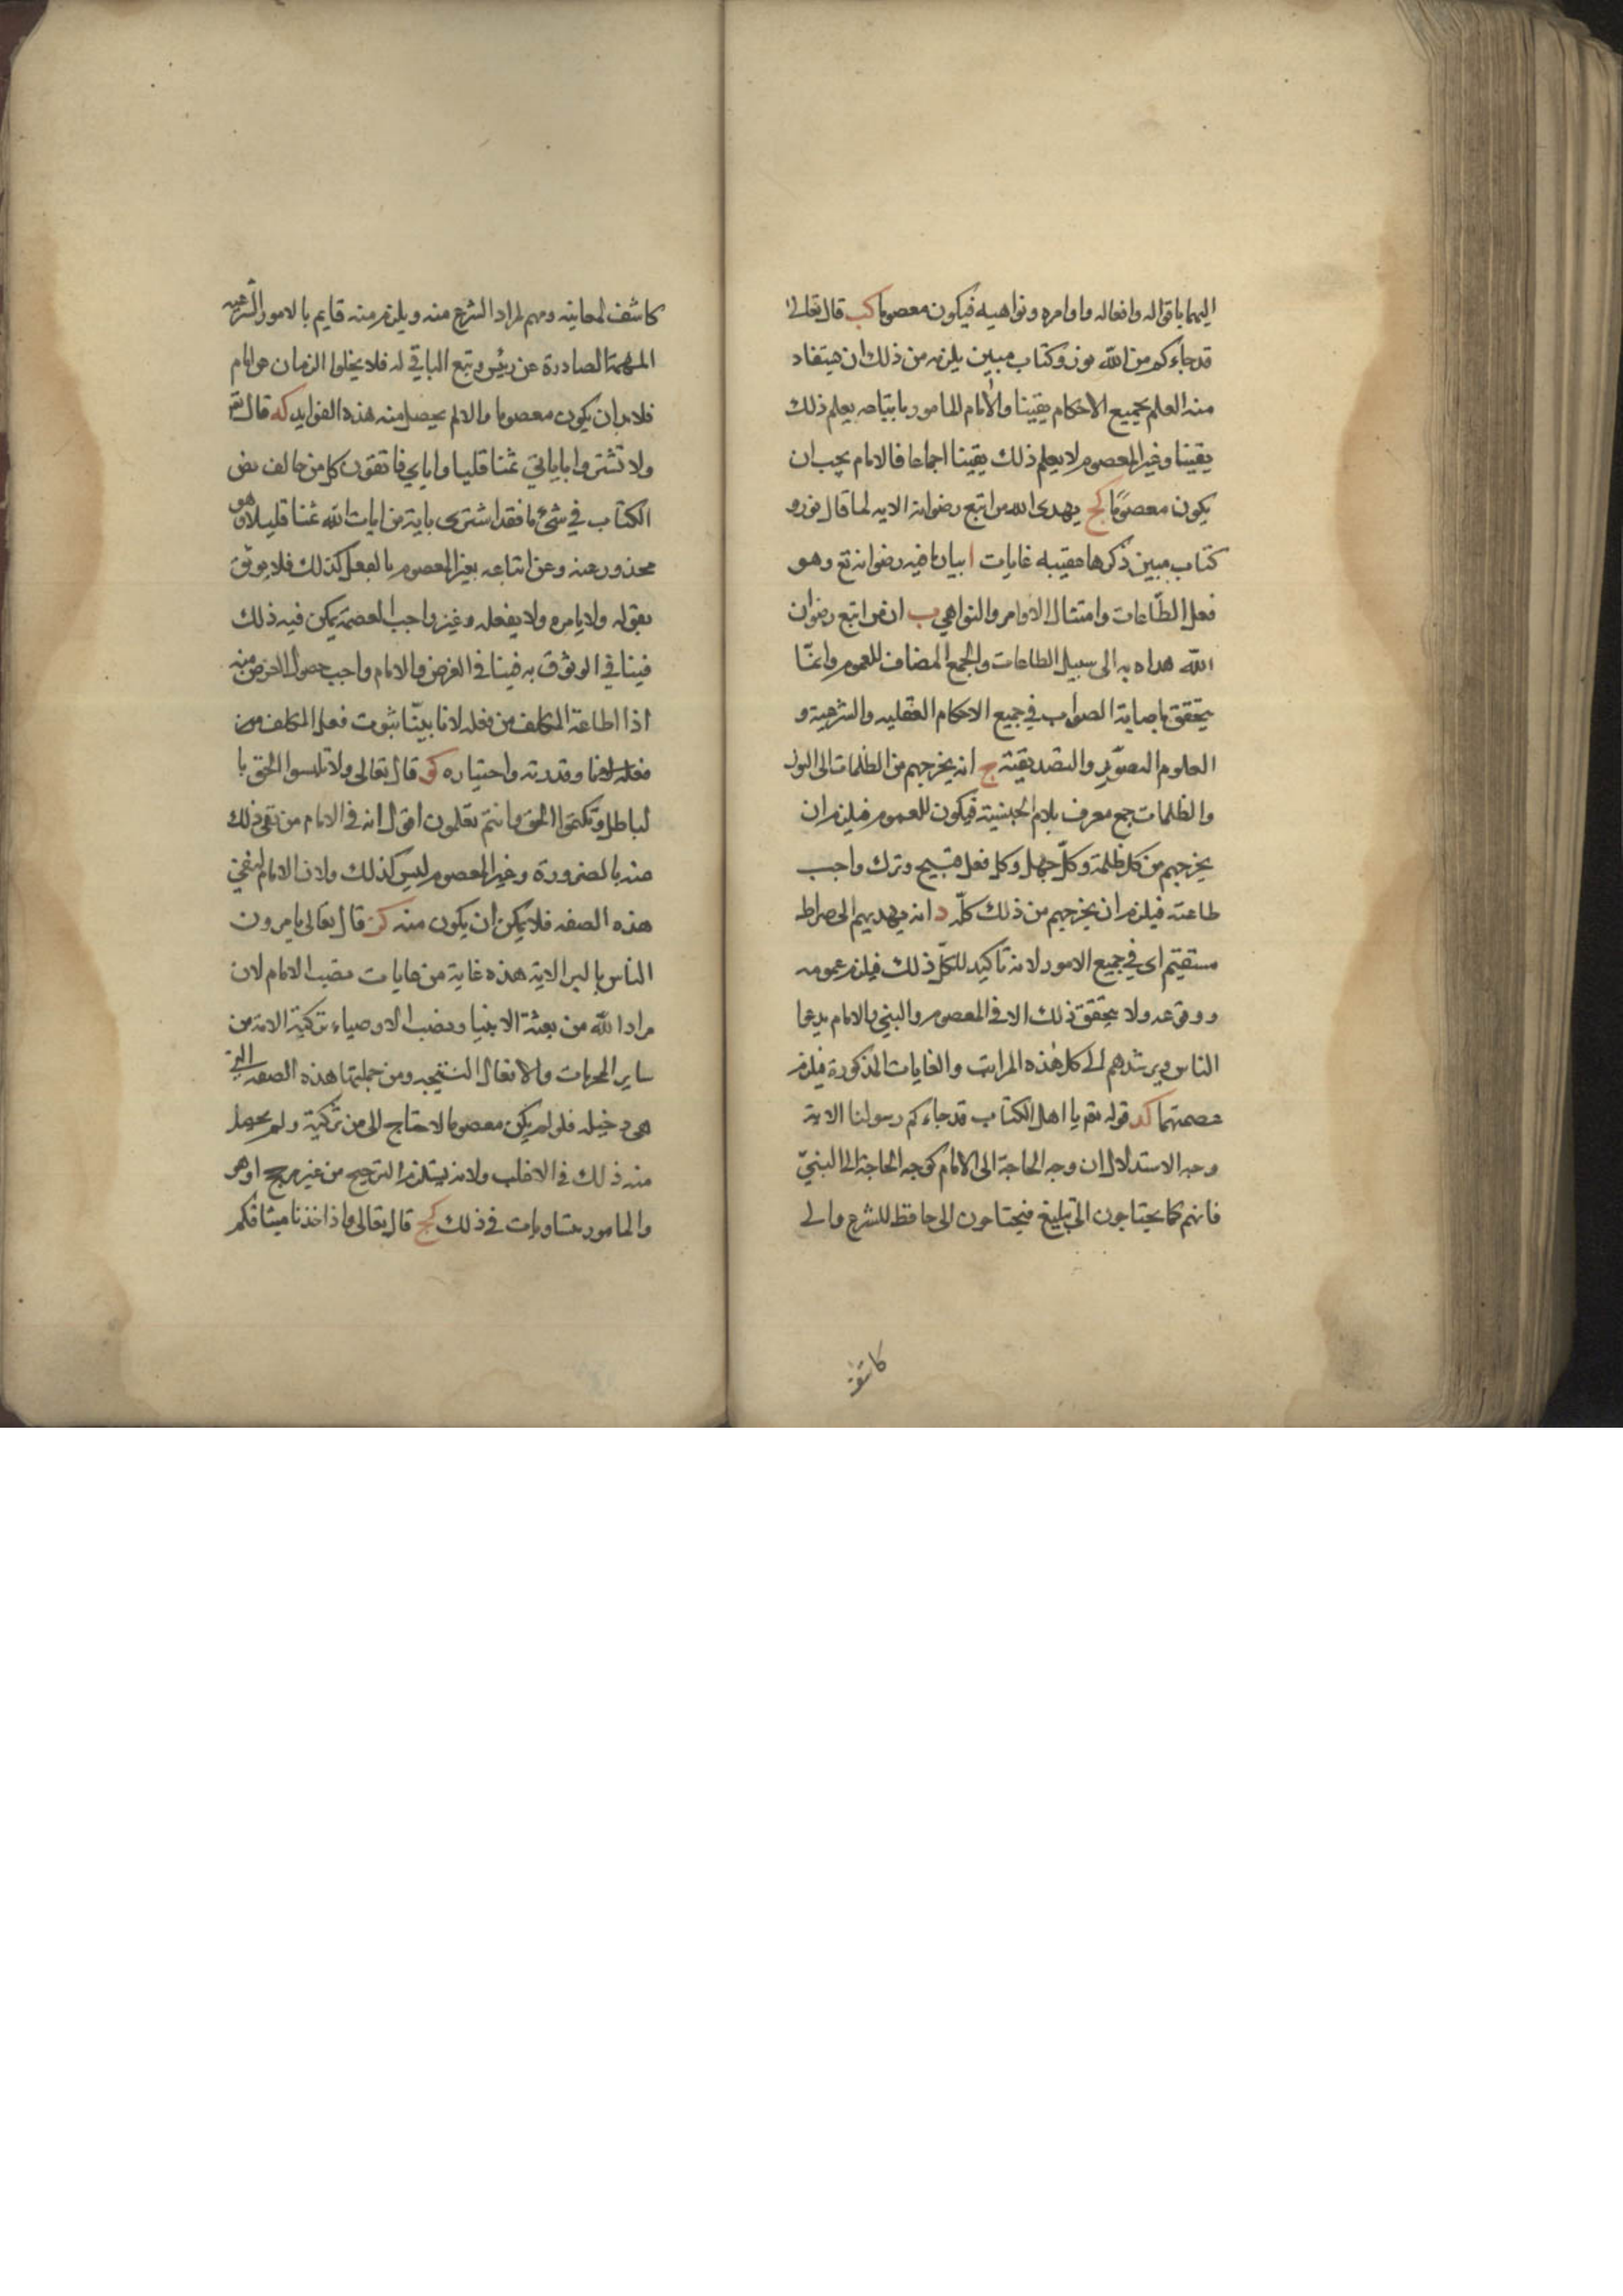 اليهما باقواله وافعاله واوامره ونواهيه فيكون معصوما كب قال تعالى
قد جاءكم من الله نور وكتاب مبين يلزم من ذلك ان يستفاد
منه العلم بجميع الاحكام يقينا والامام المامور باتباعه يعلم ذلك
يقينا وغير المعصوم لا يعلم ذلك يقينا اجماعا فالامام يجب ان
يكون معصوما كج يهدى الله من اتبع رضوانه الايه لما قال نور و
كتاب مبين ذكرها عقيبه غايات ا بيان ما فيه رضوانه تع وهو
فعل الطاعات وامتثال الاوامر والنواهي ب ان من اتبع رضوان
الله هداه به الى سبيل الطاعات والجمع المضاف للعموم وانما
يتحقق باصابة الصواب في جميع الاحكام العقليه والشرعية و
العلوم التصورية والتصديقية ج انه يخرجهم من الظلمات الى النور
والظلمات جمع معرف بلام الجنسية فيكون للعموم فيلزم ان
يخرجهم من كل ظلمة وكل جهل وكل فعل قبيح وترك واجب
طاعته فيلزم ان يخرجهم من ذلك كله د انه يهديهم الى صراط
مستقيم اى في جميع الامور لانه تاكيد للكل ذلك فيلزم عمومه
ووقوعه ولا يتحقق ذلك الا في المعصوم والنبي والامام يدعوا
الناس ويرشدهم الى كل هذه المراتب والغايات المذكورة فيلزم
عصمتهما كد قوله تع يا اهل الكتاب قد جاءكم رسولنا الاية
وجه الاستدلال ان وجه الحاجة الى الامام كوجه الحاجة الى النبي
فانهم كما يحتاجون الى تبليغ فيحتاجون الى حافظ للشرع والى
كاشف
كاشف لمعانيه ومهم لمراد الشرع منه ويلزم منه قايم بالامور الشرعيه
المهمة الصادرة عن رئيس ويتبع الباقي له فلا يخلوا الزمان من امام
فلا بد ان يكون معصوما والا لم يحصل منه هذه الفوايد كه قال تع
ولا تشتروا باياتي ثمنا قليلا واياي فاتقون كل من خالف نص
الكتاب في شئ ما فقد اشترى باية من ايات الله ثمنا قليلا وهو
محذور عنه وعن اتباعه بغير المعصوم بالفعل كذلك فلا يوثق
بقوله ولا يامره ولا يفعله وغير واجب العصمة يمكن فيه ذلك
فينافي الوثوق به فينافي الغرض والامام واجب حصول الغرض منه
اذا اطاعه المكلف من فعله لانا بينا ثبوت فعل المكلف من
فعله وقدرته واختياره كو قال تعالى ولا تلبسوا الحق با
لباطل وتكتموا الحق وانتم تعلمون اقول انه في الامام من نفى ذلك
عنه بالضرورة وغير المعصوم ليس كذلك ولان الامام لنفي
هذه الصفه فلا يمكن ان يكون منه كز قال تعالى يامرون
الناس بالبر الاية هذه غاية من غايات نصب الامام لان
مراد الله من بعثة الانبيا ونصب الاوصياء تزكية الامة من
ساير المحرمات والافعال القبيحه ومن جملتها هذه الصفه التي
هي دخيله فلو لم يكن معصوما لاحتاج الى من تزكية ولم يحصل
منه ذلك في الاغلب ولانه يستلزم الترجيح من غير مرجح اوهو
والمامور متساويات في ذلك كح قال تعالى واذ اخذنا ميثاقكم